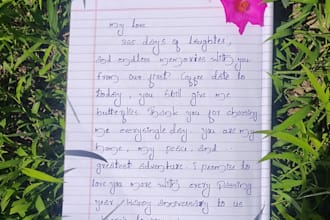 My love
365 days of laughter,
and endless memories with you
from our first Coffee date to
today, you still give me
butterflies. Thank you for choosing
me everysingle day. you are my
home, my peace, and
greatest adventure. I promise to
love you more with every passing
year. Happy anniversary to us